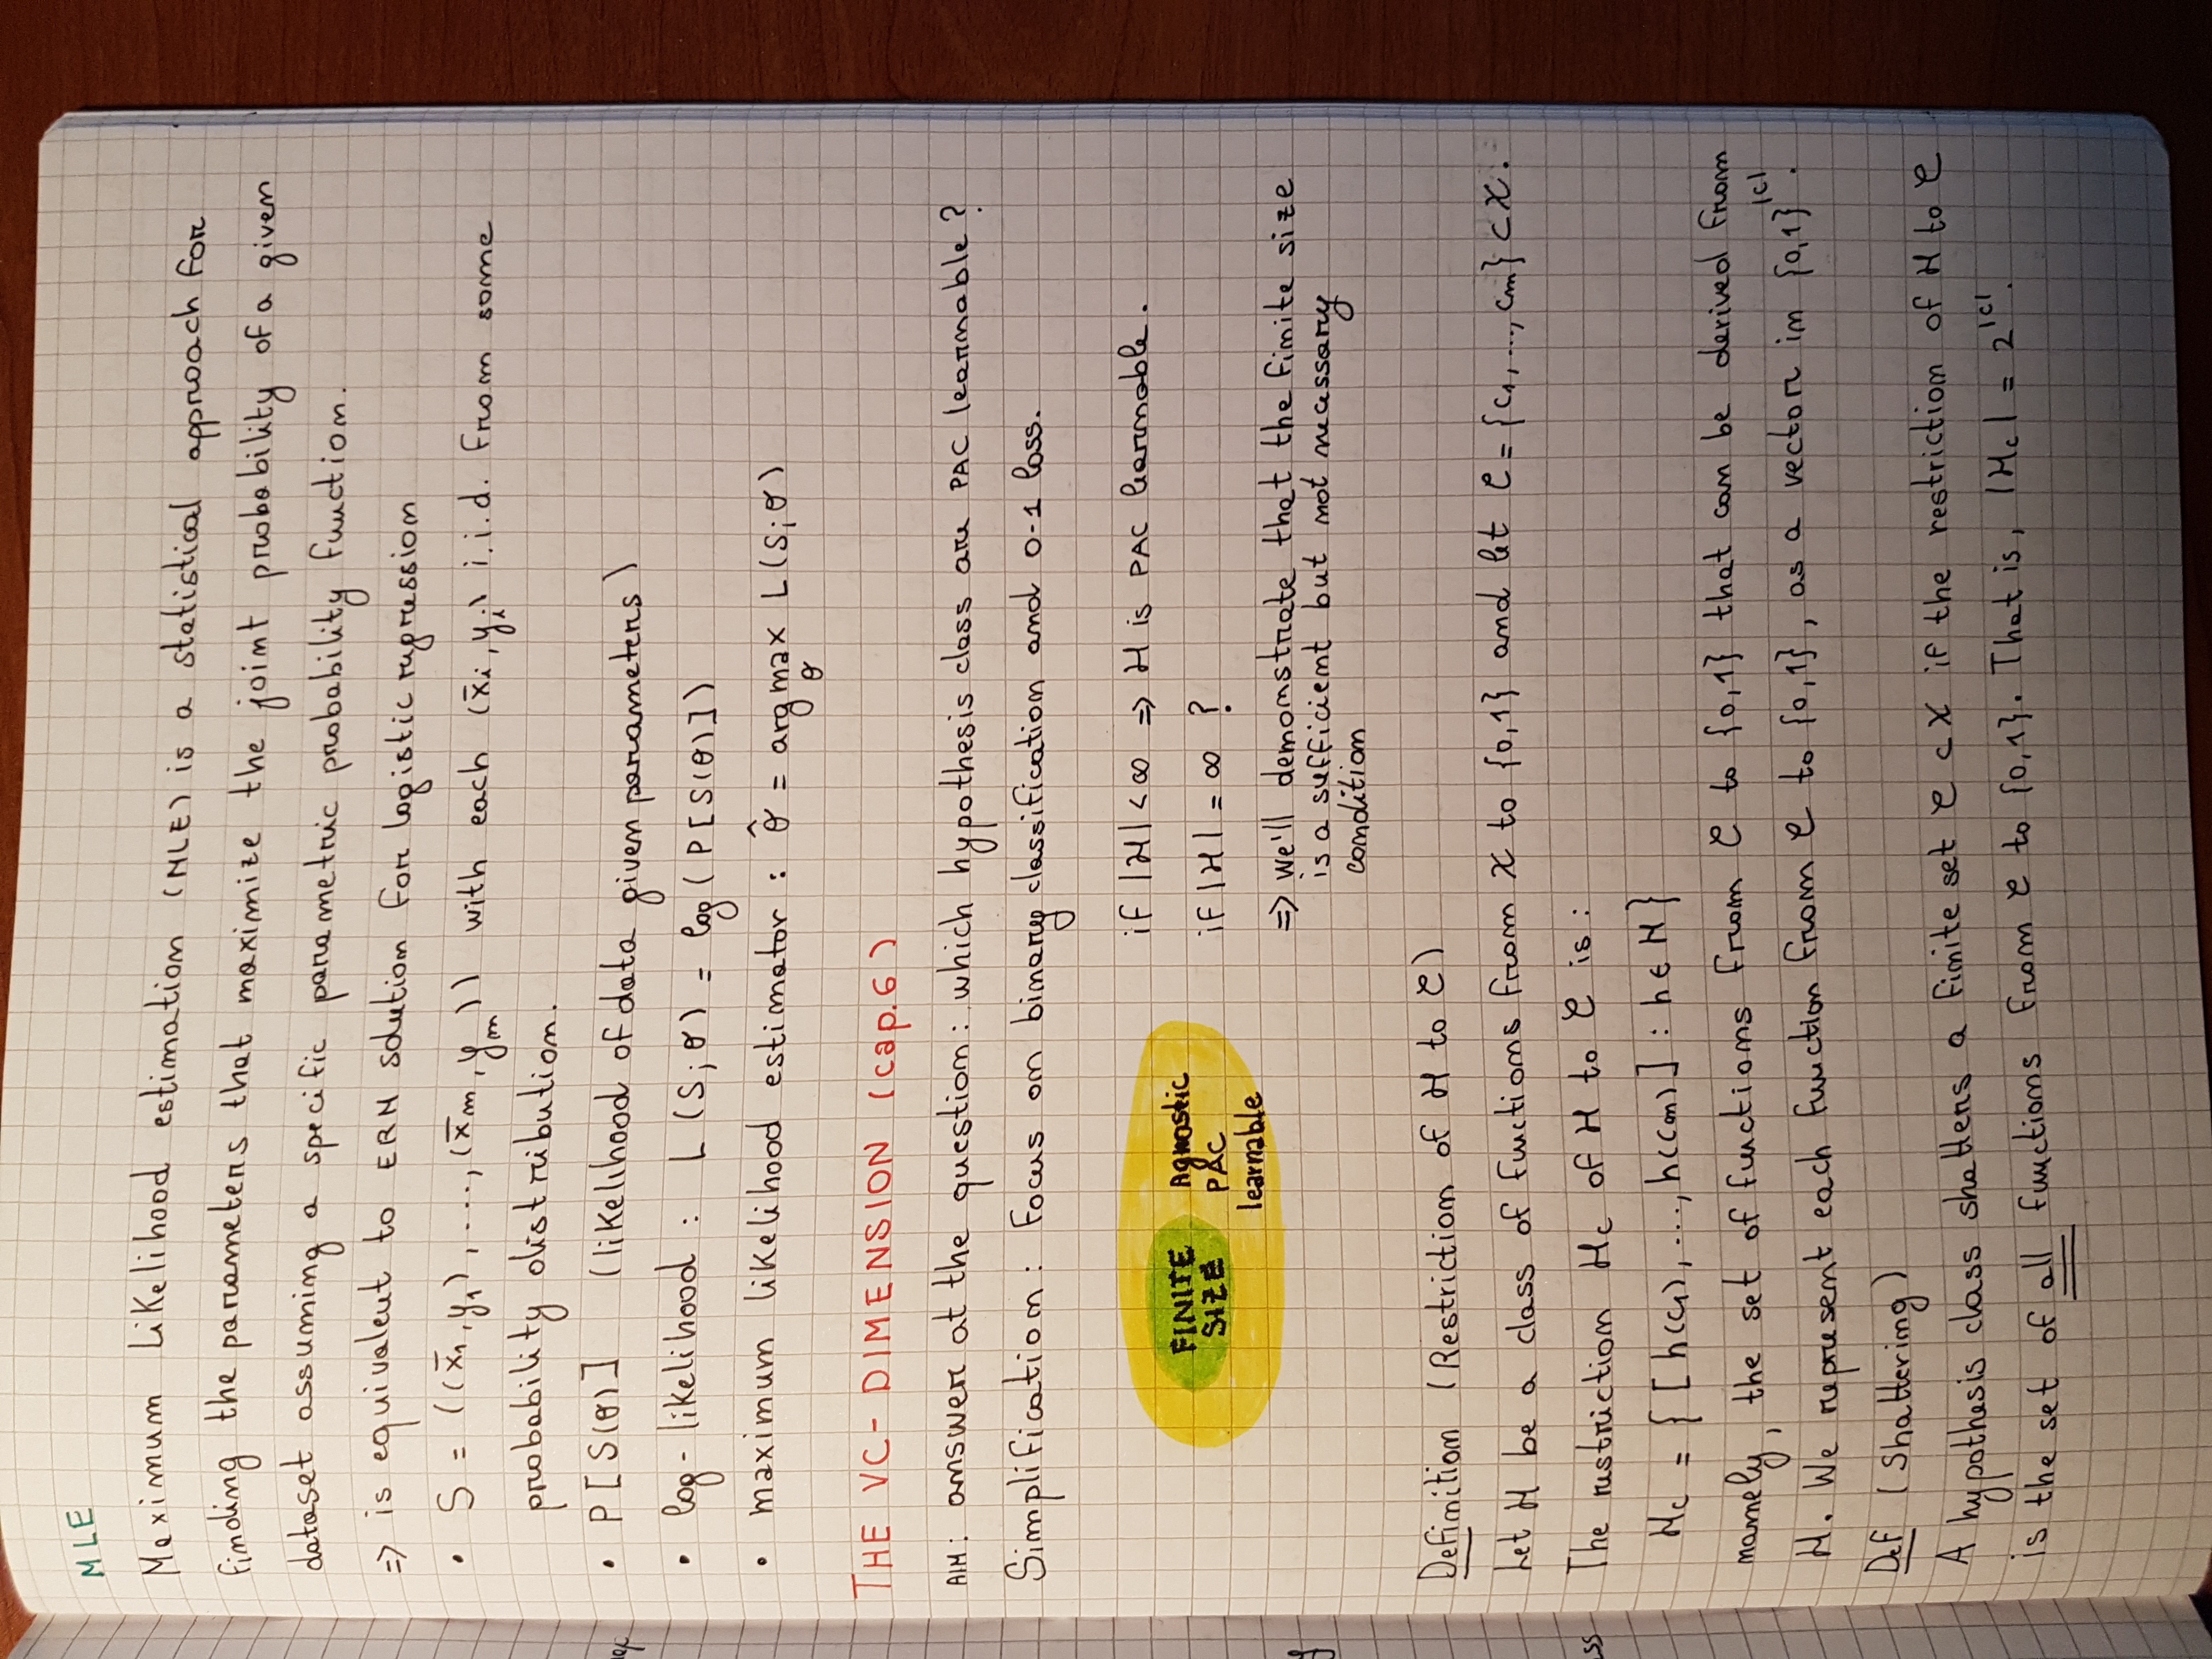 MLE
Maximum Likelihood estimation (MLE) is a statistical approach for
finding the parameters that maximize the joint probability of a given
dataset assuming a specific parametric probability function.
=> is equivalent to ERM solution for logistic regression
• S = ((x̄₁,y₁), ..., (x̄m,ym)) with each (x̄i,yi) i.i.d. from some
probability distribution.
• P[S(θ)] (likelihood of data given parameters)
• log-likelihood : L(S;θ) = log(P[S(θ)])
• maximum likelihood estimator : θ̂ = argmax L(S;θ)
θ
THE VC-DIMENSION (cap.6)
AIM: answer at the question: which hypothesis class are PAC learnable?
Simplification: Focus on binary classification and 0-1 loss.
FINITE SIZE
Agnostic PAC learnable
if |H| < ∞ => H is PAC learnable.
if |H| = ∞ ?
=> we'll demonstrate that the finite size
is a sufficient but not necessary
condition
Definition (Restriction of H to C)
Let H be a class of functions from X to {0,1} and let C = {c₁, ..., cm} ⊂ X.
The restriction Hc of H to C is:
Hc = { [h(c₁), ..., h(cm)] : h ∈ H }
namely, the set of functions from C to {0,1} that can be derived from
H. We represent each function from C to {0,1}, as a vector in {0,1}^|C|.
Def (Shattering)
A hypothesis class shatters a finite set C ⊂ X if the restriction of H to C
is the set of all functions from C to {0,1}. That is, |Hc| = 2^|C|.